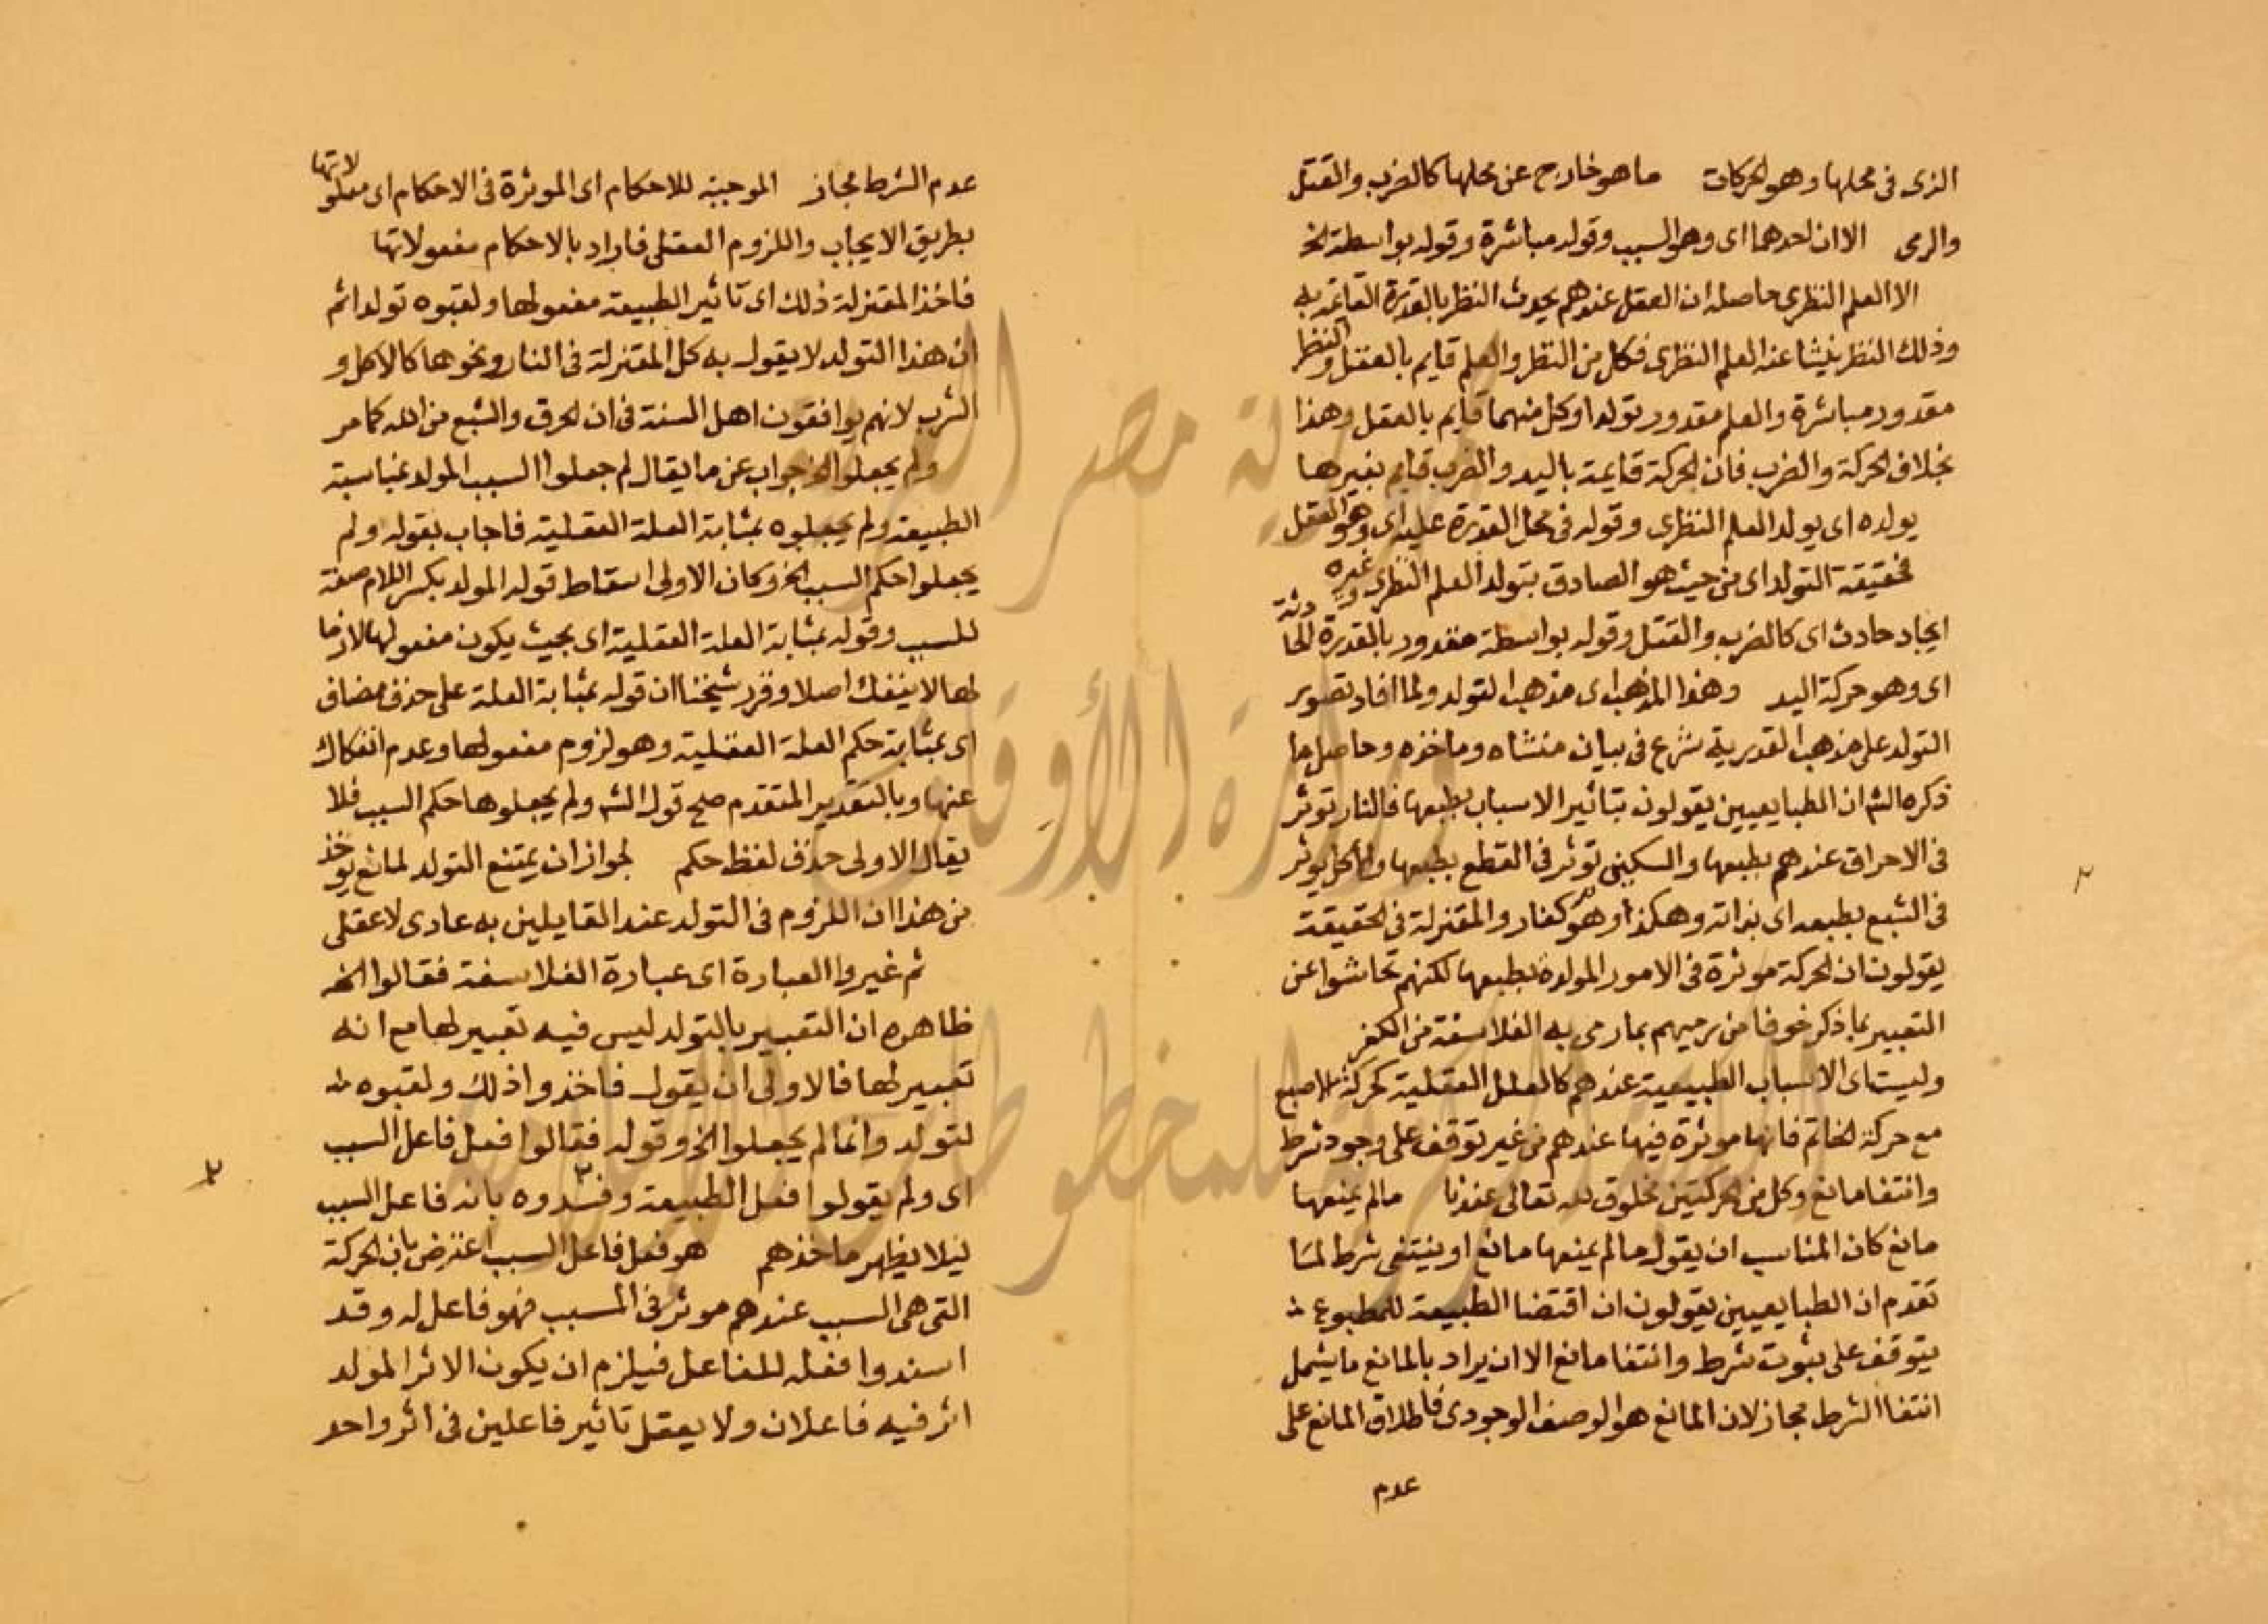 الذى فى محلها وهو الحركات ما هو خارج عن محلها كالضرب والقتل
والرمى الا ان احدهما اى وهو السبب وقوله مباشرة وقوله بواسطة الخ
الا العلم النظرى حاصله ان العقل عندهم يحدث النظر بالقدرة القائمة به
وذلك النظر ينشا عنه العلم النظرى فكل من النظر والعلم قايم بالعقل والنظر
مقدور مباشرة والعلم مقدور تولدا وكل منهما قايم بالعقل وهذا
بخلاف الحركة والضرب فان الحركة قايمة باليد والضرب قايم بغيرها
يولده اى يولد العلم النظرى وقوله فى محل القدرة عليه اى وهو العقل
فحقيقة التولد اى من حيث هو الصادق بتولد العلم النظرى وغيره
ايجاد حادث اى كالضرب والقتل وقوله بواسطة مقدور بالقدرة الحادثة
اى وهو حركة اليد وهذا المذهب اى مذهب التولد ولما افاد تصوير
التولد على مذهب القدرية شرع فى بيان منشاه وماخذه وحاصل ما
ذكره الشه ان الطبايعيين يقولون بتاثير الاسباب بطبعها فالنار توثر
فى الاحراق عندهم بطبعها والسكين توثر فى القطع بطبعها والاكل يوثر
فى الشبع بطبعه اى بذاته وهكذا وهم كفار والمعتزلة فى الحقيقة
يقولون ان الحركة موثرة فى الامور المولدة بطبعها لكنهم تحاشوا عن
التعبير بما ذكر خوفا من رميهم بما رمى به الفلاسفة من الكفر
وليست اى الاسباب الطبيعية عندهم كالعلل العقلية كحركة الاصبع
مع حركة الخاتم فانها موثرة فيها عندهم من غير توقف على وجود شرط
وانتفا مانع وكل من الحركتين مخلوق لله تعالى عندنا مالم يمنعها
مانع كان المناسب ان يقول مالم يمنعها مانع او ينتفى شرط لما
تقدم ان الطبايعيين يقولون ان اقتضا الطبيعة للمطبوع
يتوقف على ثبوت شرط وانتفا مانع الا ان يراد بالمانع ما يشمل
انتفا الشرط مجاز لان المانع هو الوصف الوجودى فاطلاق المانع على
عدم
عدم الشرط مجاز الموجبة للاحكام اى الموثرة فى الاحكام اى معلولاتها
بطريق الايجاب واللزوم العقلى فاراد بالاحكام مفعولاتها
فاخذ المعتزلة ذلك اى تاثير الطبيعة مفعولها ولقبوه تولدا ثم
ان هذا التولد لا يقول به كل المعتزلة فى النار ونحوها كالاكل و
الشرب لانهم يوافقون اهل السنة فى ان الحرق والشبع من الله كما مر
ولم يجعلوا الخ جواب عن ما يقال لم جعلوا السبب المولد بمناسبة
الطبيعة ولم يجعلوه بمثابة العلة العقلية فاجاب بقوله ولم
يجعلوا حكم السبب الخ وكان الاولى اسقاط قوله المولد بكسر اللام صفة
للسبب وقوله بمثابة العلة العقلية اى بحيث يكون مفعولها لازما
لها لا ينفك اصلا وقرر شيخنا ان قوله بمثابة العلة على حذف مضاف
اى بمثابة حكم العلة العقلية وهو لزوم مفعولها وعدم انفكاك
عنها وبالتقدير المتقدم صح قول الشه ولم يجعلوها حكم السبب فلا
يقال الاولى حذف لفظ حكم لجواز ان يمتنع التولد لمانع يوخذ
من هذا ان اللزوم فى التولد عند القايلين به عادى لا عقلى
ثم غيروا العبارة اى عبارة الفلاسفة فقالوا الخ
ظاهره ان التعبير بالتولد ليس فيه تعبير لها مع انه
تعبير لها فالاولى ان يقول فاخذوا ذلك ولقبوه
لتولد وانما لم يجعلوا الخ وقوله فقالوا فعل فاعل السبب
اى ولم يقولوا فعل الطبيعة وفسروه بانه فاعل السبب
ليلا يظهر ماخذهم هو فعل فاعل السبب اعترض بان الحركة
التى هى السبب عندهم موثر فى المسبب فهو فاعل له وقد
اسندوا فعله للفاعل فيلزم ان يكون الاثر المولد
اثر فيه فاعلان ولا يعقل تاثير فاعلين فى اثر واحد